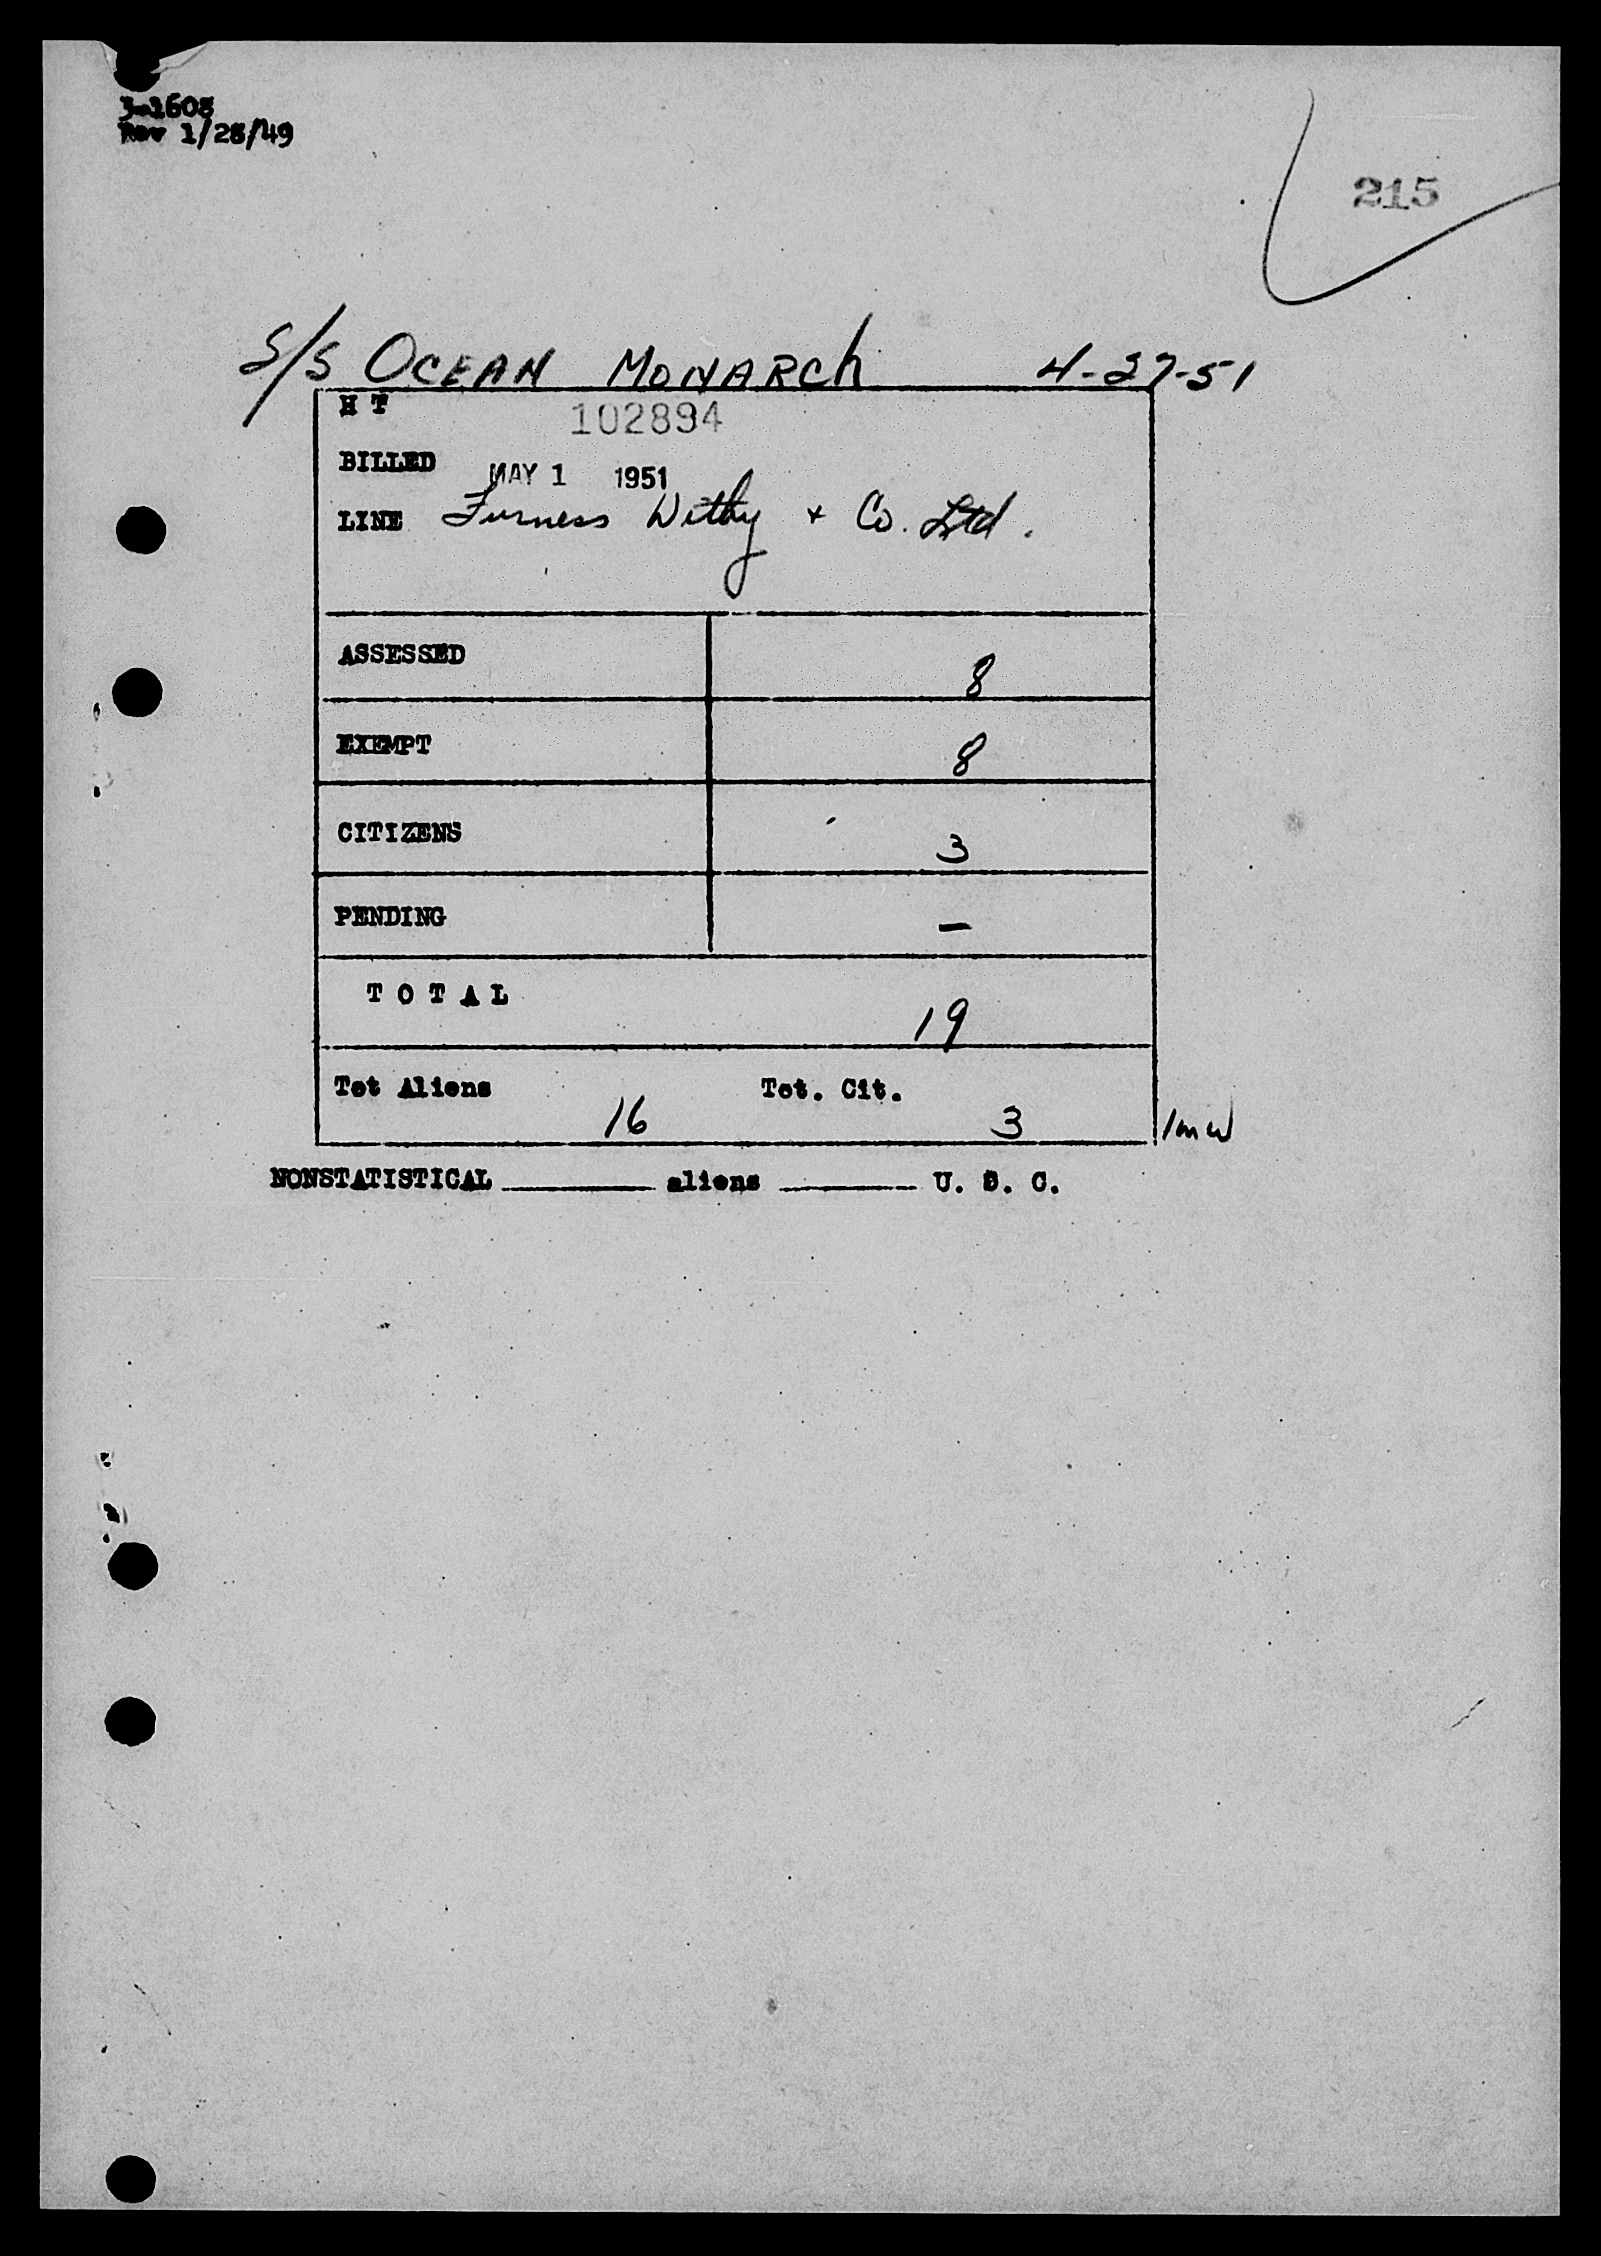 3-1608
Rev 1/28/49
215
S/S OCEAN MONARCh 4-27-51
H T 102894
BILLED MAY 1 1951
LINE Furness Withy + Co. Ltd.
ASSESSED 8
EXEMPT 8
CITIZENS 3
PENDING —
T O T A L 19
Tot Aliens 16 Tot. Cit. 3
NONSTATISTICAL ______ aliens ______ U. S. C.